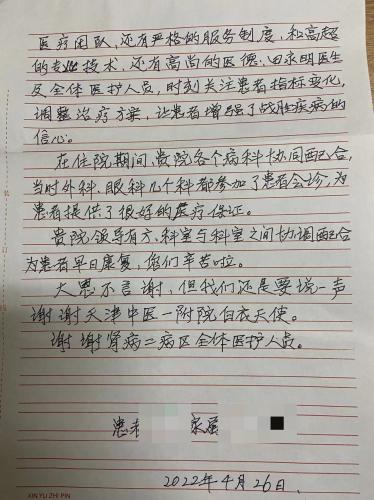 医疗团队,还有严格的服务制度,和高超
的专业技术,还有高尚的医德,田求明医生
及全体医护人员,时刻关注患者指标变化,
调整治疗方案,让患者增强了战胜疾病的
信心。
在住院期间,贵院各个病科协同配合,
当时外科、眼科几个科都参加了患者会诊,为
患者提供了很好的医疗保证。
贵院领导有方,科室与科室之间协调配合
为患者早日康复,您们辛苦啦。
大恩不言谢,但我们还是要说一声
谢谢天津中医一附院白衣天使。
谢谢肾病二病区全体医护人员。
患者 家属
2022年4月26日.
XIN YU ZHI PIN